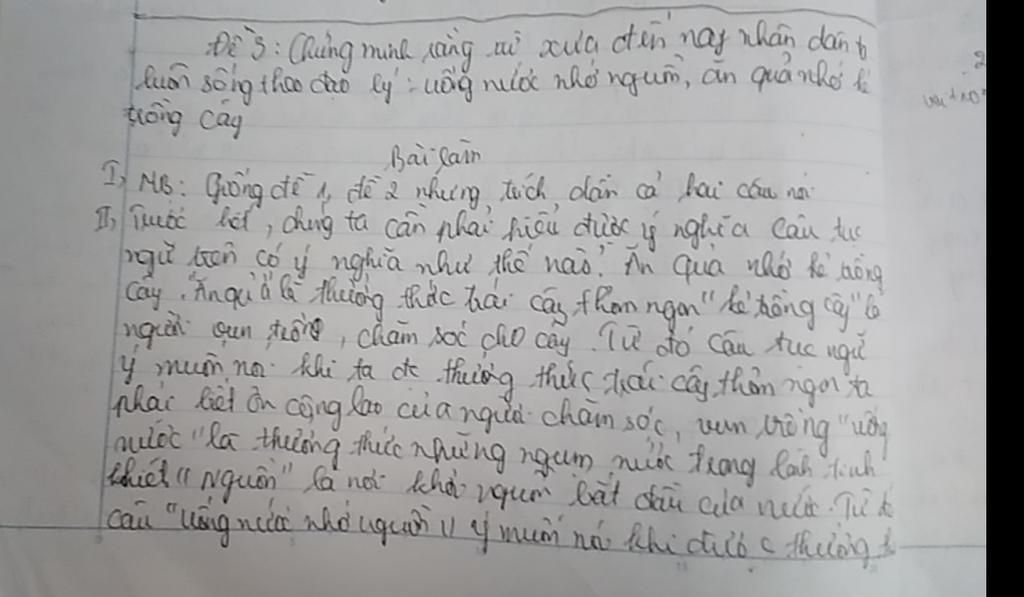 Đề 3: Chứng minh rằng từ xưa đến nay nhân dân t
luôn sống theo đạo lý: uống nước nhớ nguồn, ăn quả nhớ k
trồng cây
Bài làm
I, MB: Giống đề 1, đề 2 nhưng trích dẫn cả hai câu nói
II, Trước hết, chúng ta cần phải hiểu được ý nghĩa câu tục
ngữ trên có ý nghĩa như thế nào? Ăn quả nhớ kẻ trồng
cây. "Ăn quả" là thưởng thức trái cây thơm ngon "kẻ trồng cây" là
người vun trồng, chăm sóc cho cây. Từ đó câu tục ngữ
ý muốn nói khi ta đc thưởng thức trái cây thơm ngon ta
phải biết ơn công lao của người chăm sóc, vun trồng "uống
nước" là thưởng thức những ngụm nước trong lành tinh
khiết "Nguồn" là nơi khởi nguồn bắt đầu của nước. Từ đó
câu "Uống nước nhớ nguồn" ý muốn nói khi được thưởng t